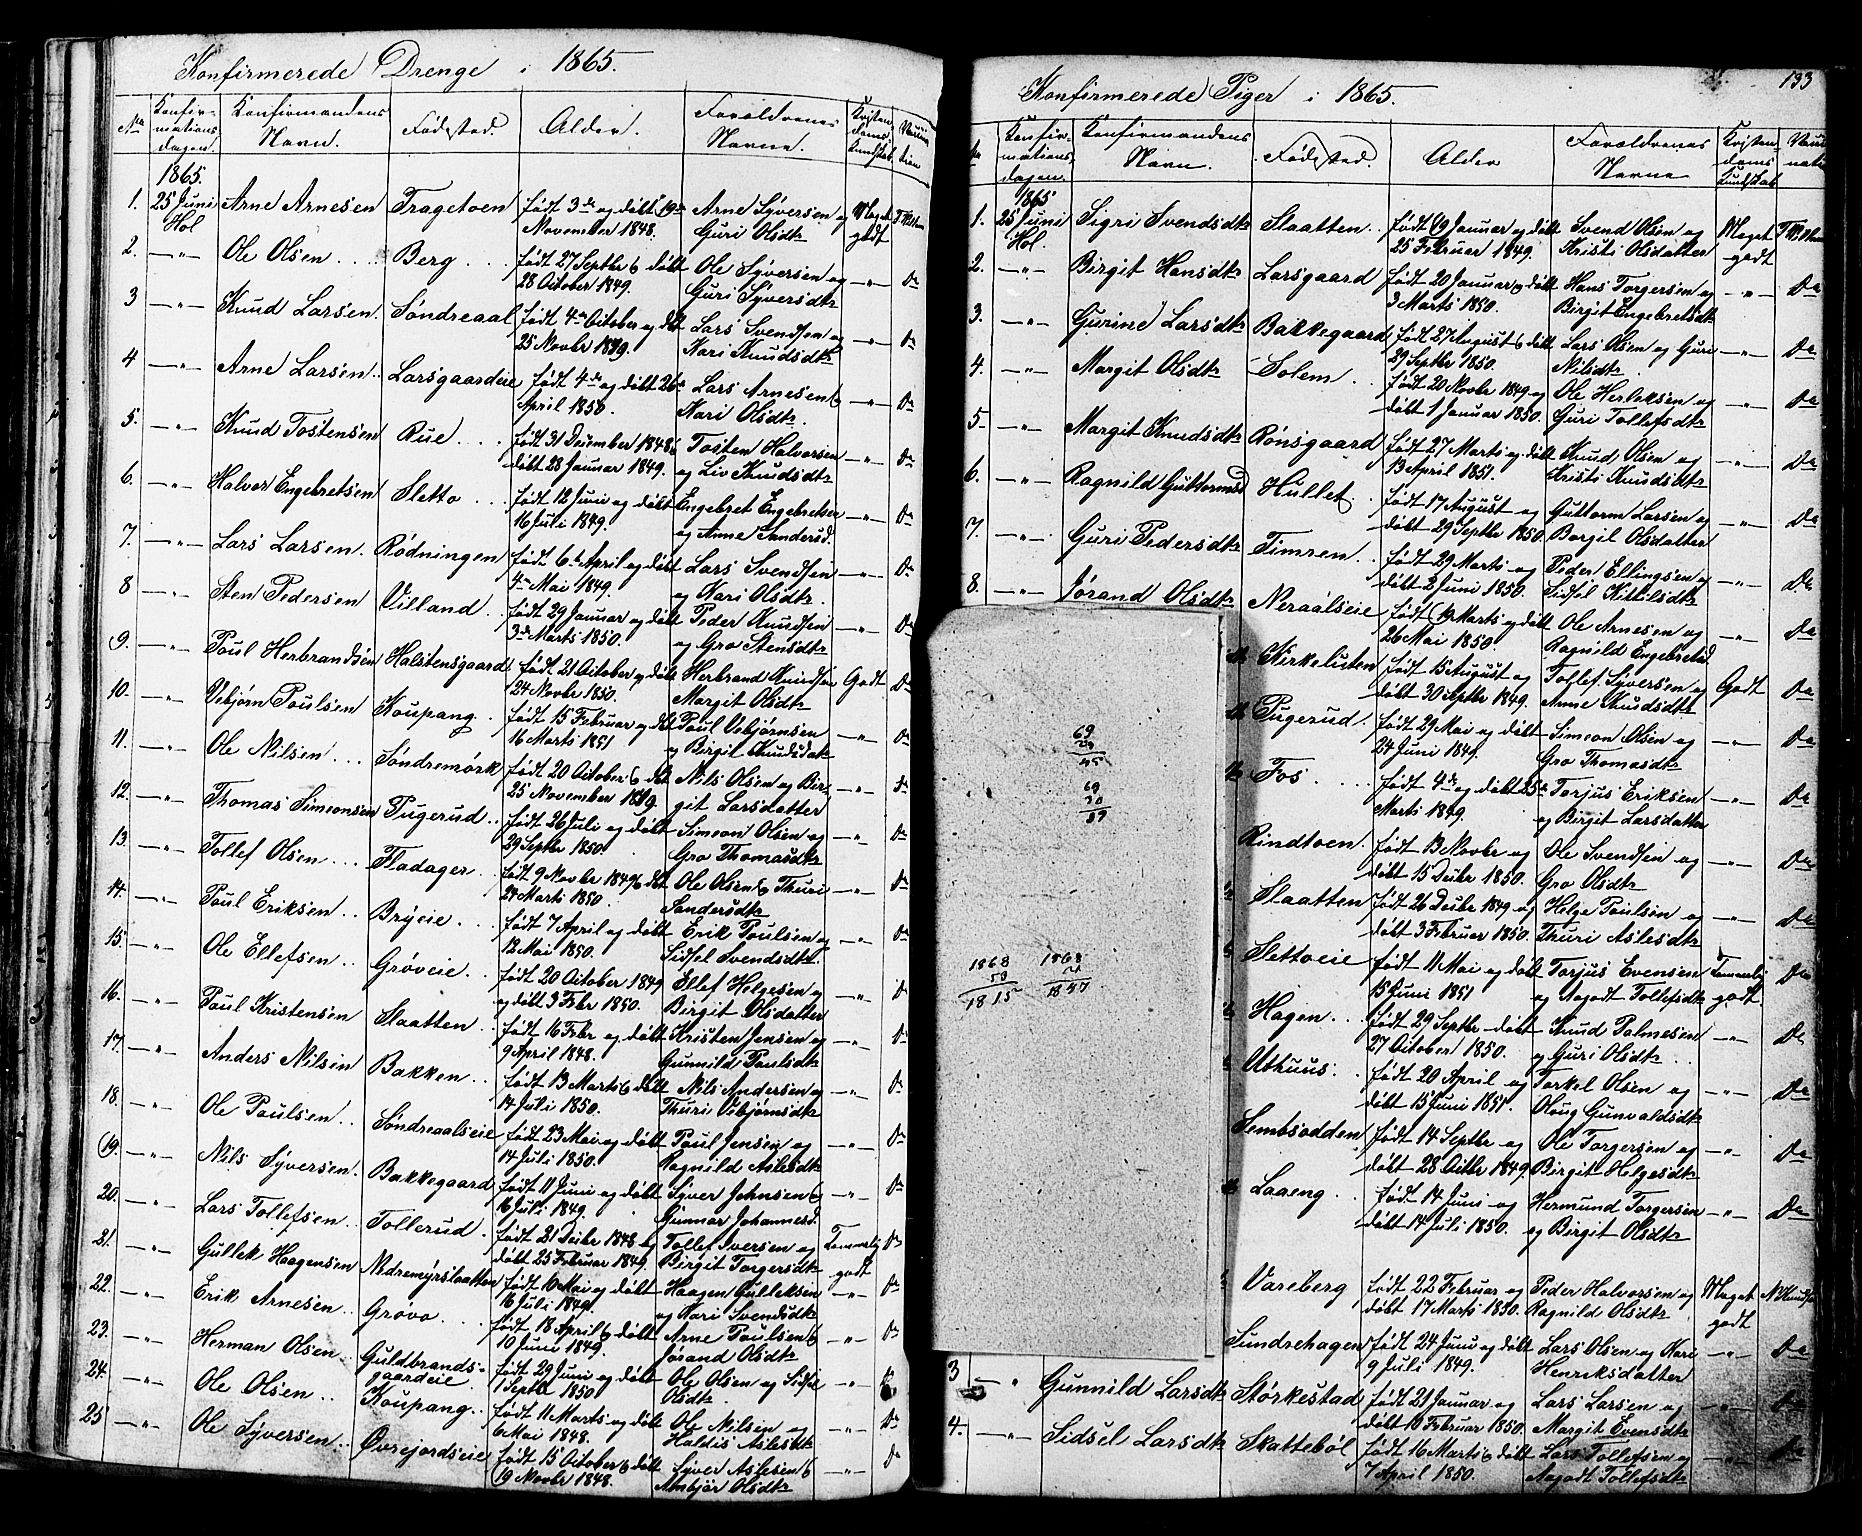 Konfirmerede Drenge i 1865.
No Konfirmationsdagen. Konfirmandens Navn. Fødested. Alder. Forældrenes Navne. Kristendoms Kundskab
1865.
1. 25 Juni Hol Arne Arnesen Tragetoen født 3de og døbt 19de November 1848. Arne Syversen og Guri Olsdtr Maget godt
2. —"— Ole Olsen Berg født 27 Septbr & døbt 28 October 1849. Ole Syversen og Guri Syversdtr —"— Do
3 —"— Knud Larsen Søndreaal født 4de October og døbt 25 Novbr 1849. Lars Svendsen og Kari Knudsdtr —"— Do
4 —"— Arne Larsen Larsgaardeie født 4de og døbt 26de April 1850. Lars Arnesen & Kari Olsdtr. —"— Do
5. —"— Knud Tostensen Rue født 31 December 1848 & døbt 28 Januar 1849. Tosten Halvorsen og Liv Knudsdtr —"— Do
6. —"— Halvor Engebretsen Sletto født 12 Juni og døbt 16 Juli 1849. Engebret Engebretsen og Anne Sandersd. —"— Do
7. —"— Lars Larsen. Rødningen født 6te April og døbt 4de Mai 1849. Lars Svendsen og Kari Olsdtr. —"— Do
8 —"— Sten Pedersen Villand født 29 Januar og døbt 3de Marts 1850. Peder Knudsen og Gro Stensdtr —"— Do
9. —"— Poul Herbrandsen Halstensgaard født 21 October og døbt 24 Novbr 1850. Herbrand Knudsen Margit Olsdtr Godt Do
10. —"— Vebjørn Poulsen Koupang født 15 Februar og døbt 16 Marts 1851 Poul Vebjørnsen og Birgit Knudsdatr —"— Do
11. —"— Ole Nilsen Søndremørk født 20 October & døbt 25 November 1849. Nils Olsen og Birgit Larsdatter —"— Do
12. —"— Thomas Simeonsen Pugerud født 26 Juli og døbt 29 Septbr 1850. Simeon Olsen og Gro Thomasdtr —"— Do
13. —"— Tollef Olsen Fladager født 9 Novbr 1849 & døbt 24 Marts 1850. Ole Olsen & Thuri Sandersdtr —"— Do
14. —"— Poul Eriksen Bryeie. født 7 April og døbt 12 Mai 1850. Erik Poulsen og Sidsel Svendsdtr. —"— Do
15. —"— Ole Ellefsen Grøveie. født 20 October 1849 og døbt 3 Febr 1850. Ellef Helgesen og Birgit Olsdatter —"— Do
16. —"— Paul Kristensen Slaatten født 16 Febr og døbt 9 April 1848. Kristen Jensen og Gunnild Paulsdtr —"— Do
17. —"— Anders Nilsen Bakken født 13 Marts & døbt 14 Juli 1850. Nils Andersen og Thuri Vebjørnsdtr —"— Do
18. —"— Ole Paulsen Søndreaalseie født 23 Mai og døbt 14 Juli 1850. Paul Jensen og Ragnild Aslesdtr —"— Do
19. —"— Nils Syversen. Bakkegaard født 11 Juni og døbt 16 Juli 1849. Syver Johnsen & Gunnar Johannesd. —"— Do
20. —"— Lars Tollefsen Tollerud. født 21 Decbr 1848 og døbt 25 Februar 1849. Tollef Iversen og Birgit Torgersdtr Temmelig godt Do
21. —"— Gullek Haagensen Nedremyrslaatten født 10 Mai og døbt 16 Juli 1849. Haagen Gulleksen og Kari Svendsdtr —"— Do
22. —"— Erik Arnesen Grøvo født 18 April & døbt 10 Juni 1849. Arne Poulsen & Jørand Olsdtr —"— Do
23. —"— Herman Olsen Guldbrandsgaardeie født 29 Juni og døbt 1 Septbr 1850 Ole Olsen og Sidsel Olsdtr. —"—
24. —"— Ole Olsen Koupang født 11 Marts og døbt 6 Mai 1848. Ole Nilsen og Haldis Aslesdtr —"— Do
25 —"— Ole Syversen Øvrejordseie født 15 October & døbt 19 Novbr 1848. Syver Aslesen & Ambjør Olsdtr —"— Do
133
Konfirmerede Piger i 1865.
Konfirmationsdagen. Konfirmandens Navn. Fødested. Alder Forældrenes Navne Kristendoms Kundskab
1865
1. 25 Juni Hol Sigri Svendsdtr Slaatten født 19 Januar og døbt 25 Februar 1849. Svend Olsen og Kristi Olsdatter Maget godt
2. —"— Birgit Hansdtr Larsgaard født 20 Januar & døbt 3 Marts 1850. Hans Torgersen og Birgit Engebretsdtr —"— Do
3. —"— Gurine Larsdtr Bakkegaard født 27 August & døbt 29 Septbr 1850. Lars Olsen og Guri Nilsdtr —"— Do
4. —"— Margit Olsdtr Solem født 20 Novbr 1849 og døbt 1 Januar 1850. Ole Herleksen og Guri Tollefsdtr —"— Do
5 —"— Margit Knudsdtr Rønsgaard født 27 Marts og døbt 13 April 1851. Knud Olsen og Kristi Knudsdtr —"— Do
6. —"— Ragnild Guttormsd Hullet. født 17 August og døbt 29 Septbr 1850 Guttorm Larsen og Borgil Olsdatter —"— Do
7. —"— Guri Pedersdtr Timren født 29 Marts og døbt 2 Juni 1850. Peder Ellingsen og Sidsel Kittilsdtr —"— Do
8. —"— Jørand Olsdtr Neraalseie født 19 Marts og døbt 26 Mai 1850. Ole Arnesen og Ragnild Engebretsd. —"— Do
Kirkelieten født 15 August og døbt 30 Septbr 1849. Tollef Syversen og Anne Knudsdtr Godt Do
Pugerud. født 29 Mai og døbt 24 Juni 1849. Simeon Olsen og Gro Thomasdtr —"— Do
Fos født 4de og døbt 25de Marts 1849. Torjus Eriksen og Birgit Larsdatter —"— Do
Rindtoen. født 13 Novbr og døbt 15 Decbr 1850. Ole Svendsen og Gro Olsdtr —"— Do
Slaatten født 26 Decbr 1849 og døbt 3 Februar 1850. Helge Poulsen og Thuri Aslesdtr —"— Do
Slettoeie født 11 Mai og døbt 15 Juni 1851 Torjus Evensen og Aagodt Tollefsdtr Temmelig godt Do
Hagen født 29 Septbr døbt 27 October 1850. Knud Palmesen og Guri Olsdtr —"— Do
Uthuus. født 20 April og døbt 15 Juni 1851. Torkel Olsen og Oloug Gunvaldsdtr —"— Do
Sembsodden født 14 Septbr og døbt 28 Octbr 1849. Ole Torgersen og Birgit Helgesdtr —"— Do
Laaeng født 14 Juni og døbt 14 Juli 1850. Hermund Torgersen og Birgit Olsdtr —"— Do
Vareberg født 22 Februar og døbt 17 Marts 1850. Peder Halvorsen og Ragnild Olsdtr Maget godt
Sundrehagen født 24 Juni og døbt 9 Juli 1849. Lars Olsen og Kari Henriksdatter —"— Do
3 —"— Gunnild Larsdtr Størkestad født 21 Januar og døbt 10 Februar 1850. Lars Larsen og Margit Evensdtr —"— Do
4. —"— Sidsel Larsdtr Skattebøl født 16 Marts & døbt 7 April 1850. Lars Tollefsen og Aagodt Tollefsdtr —"— Do
69
45
69
1868
50
1815
1868
1847